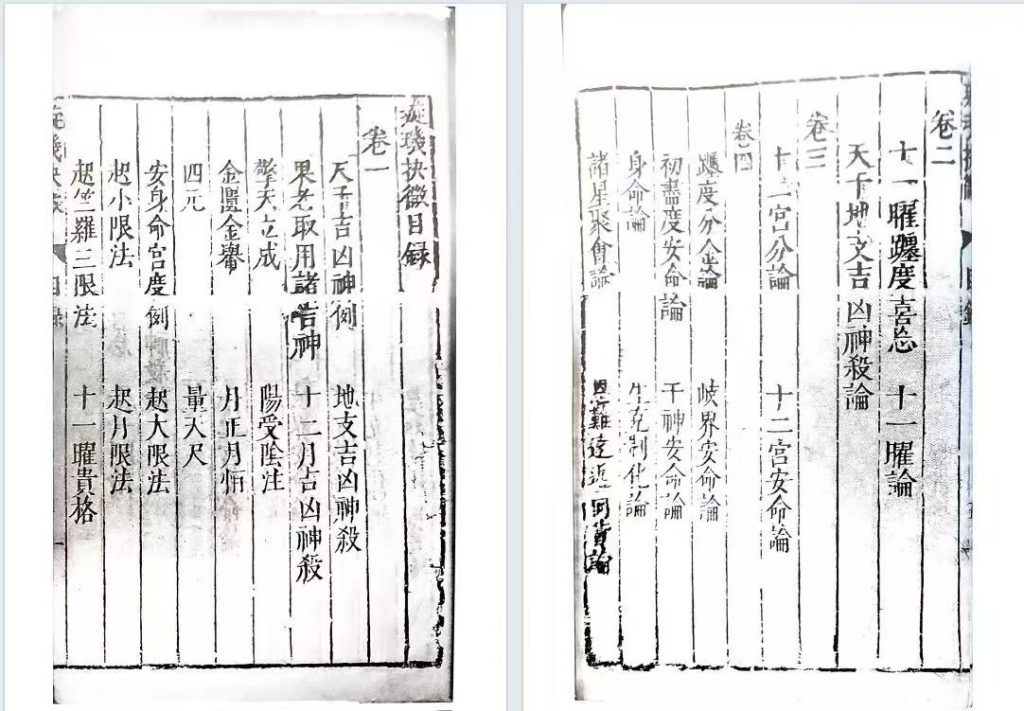 璇璣抉微目録
卷一
天干吉凶神例 地支吉凶神殺
果老取用諸吉神 十二月吉凶神殺
擎天立成 陽受陰注
金匱金轝 月正月
四元 量天尺
安身命宮度例 起大限法
起小限法 起月限法
起竺羅三限法 十一曜貴格
卷二
十一曜躔度喜忌 十一曜論
天干地支吉凶神殺論
卷三
十二宮分論 十二宮安命論
卷四
躔度分金論 岐界安命論
初盡度安命論 干神安命論
身命論 生克制化論
諸星聚會論 難遠近論